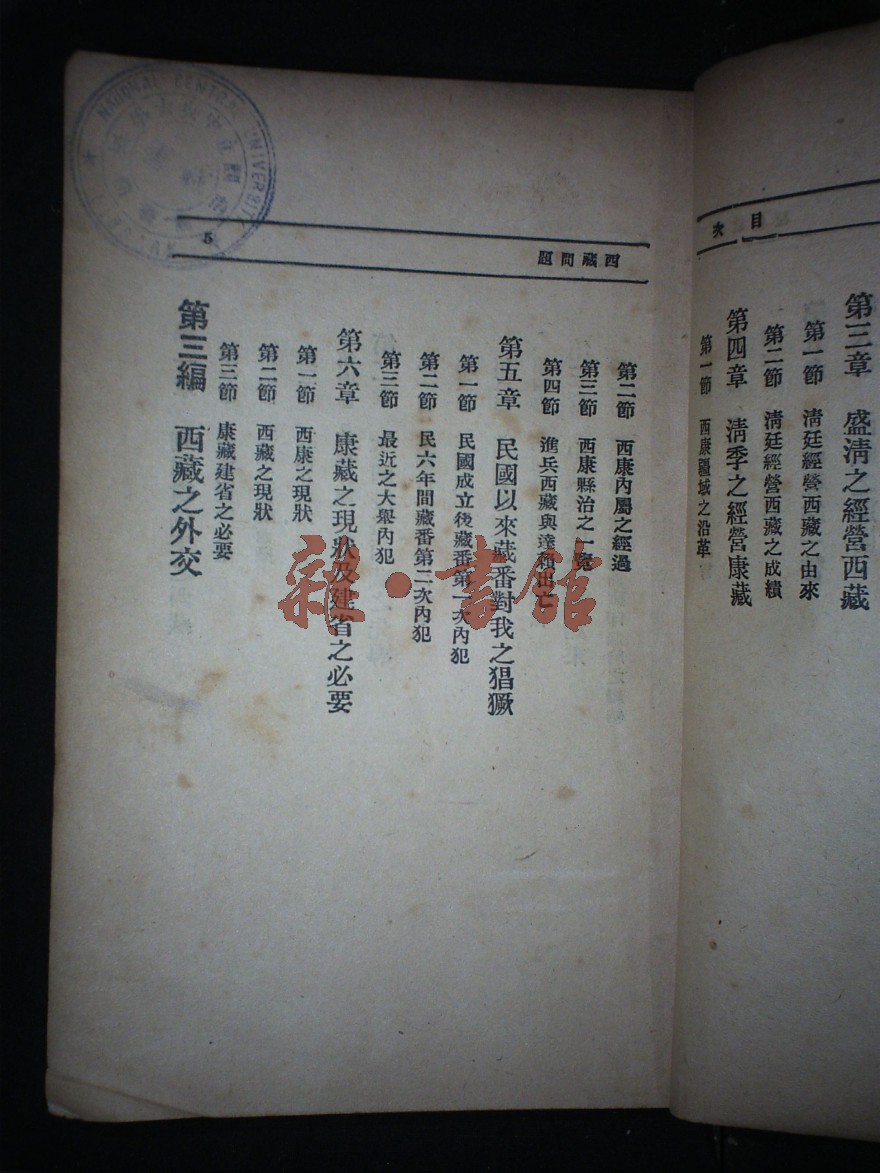 目次
第三章　盛清之經營西藏
第一節　清廷經營西藏之由來
第二節　清廷經營西藏之成績
第四章　清季之經營康藏
第一節　西康疆域之沿革
西藏問題
5
第二節　西康內屬之經過
第三節　西康縣治之一覽
第四節　進兵西藏與達賴出亡
第五章　民國以來藏番對我之猖獗
第一節　民國成立後藏番第一次內犯
第二節　民六年間藏番第二次內犯
第三節　最近之大舉內犯
第六章　康藏之現狀及建省之必要
第一節　西康之現狀
第二節　西藏之現狀
第三節　康藏建省之必要
第三編　西藏之外交
NATIONAL CENTRAL UNIVERSITY
雜·書館